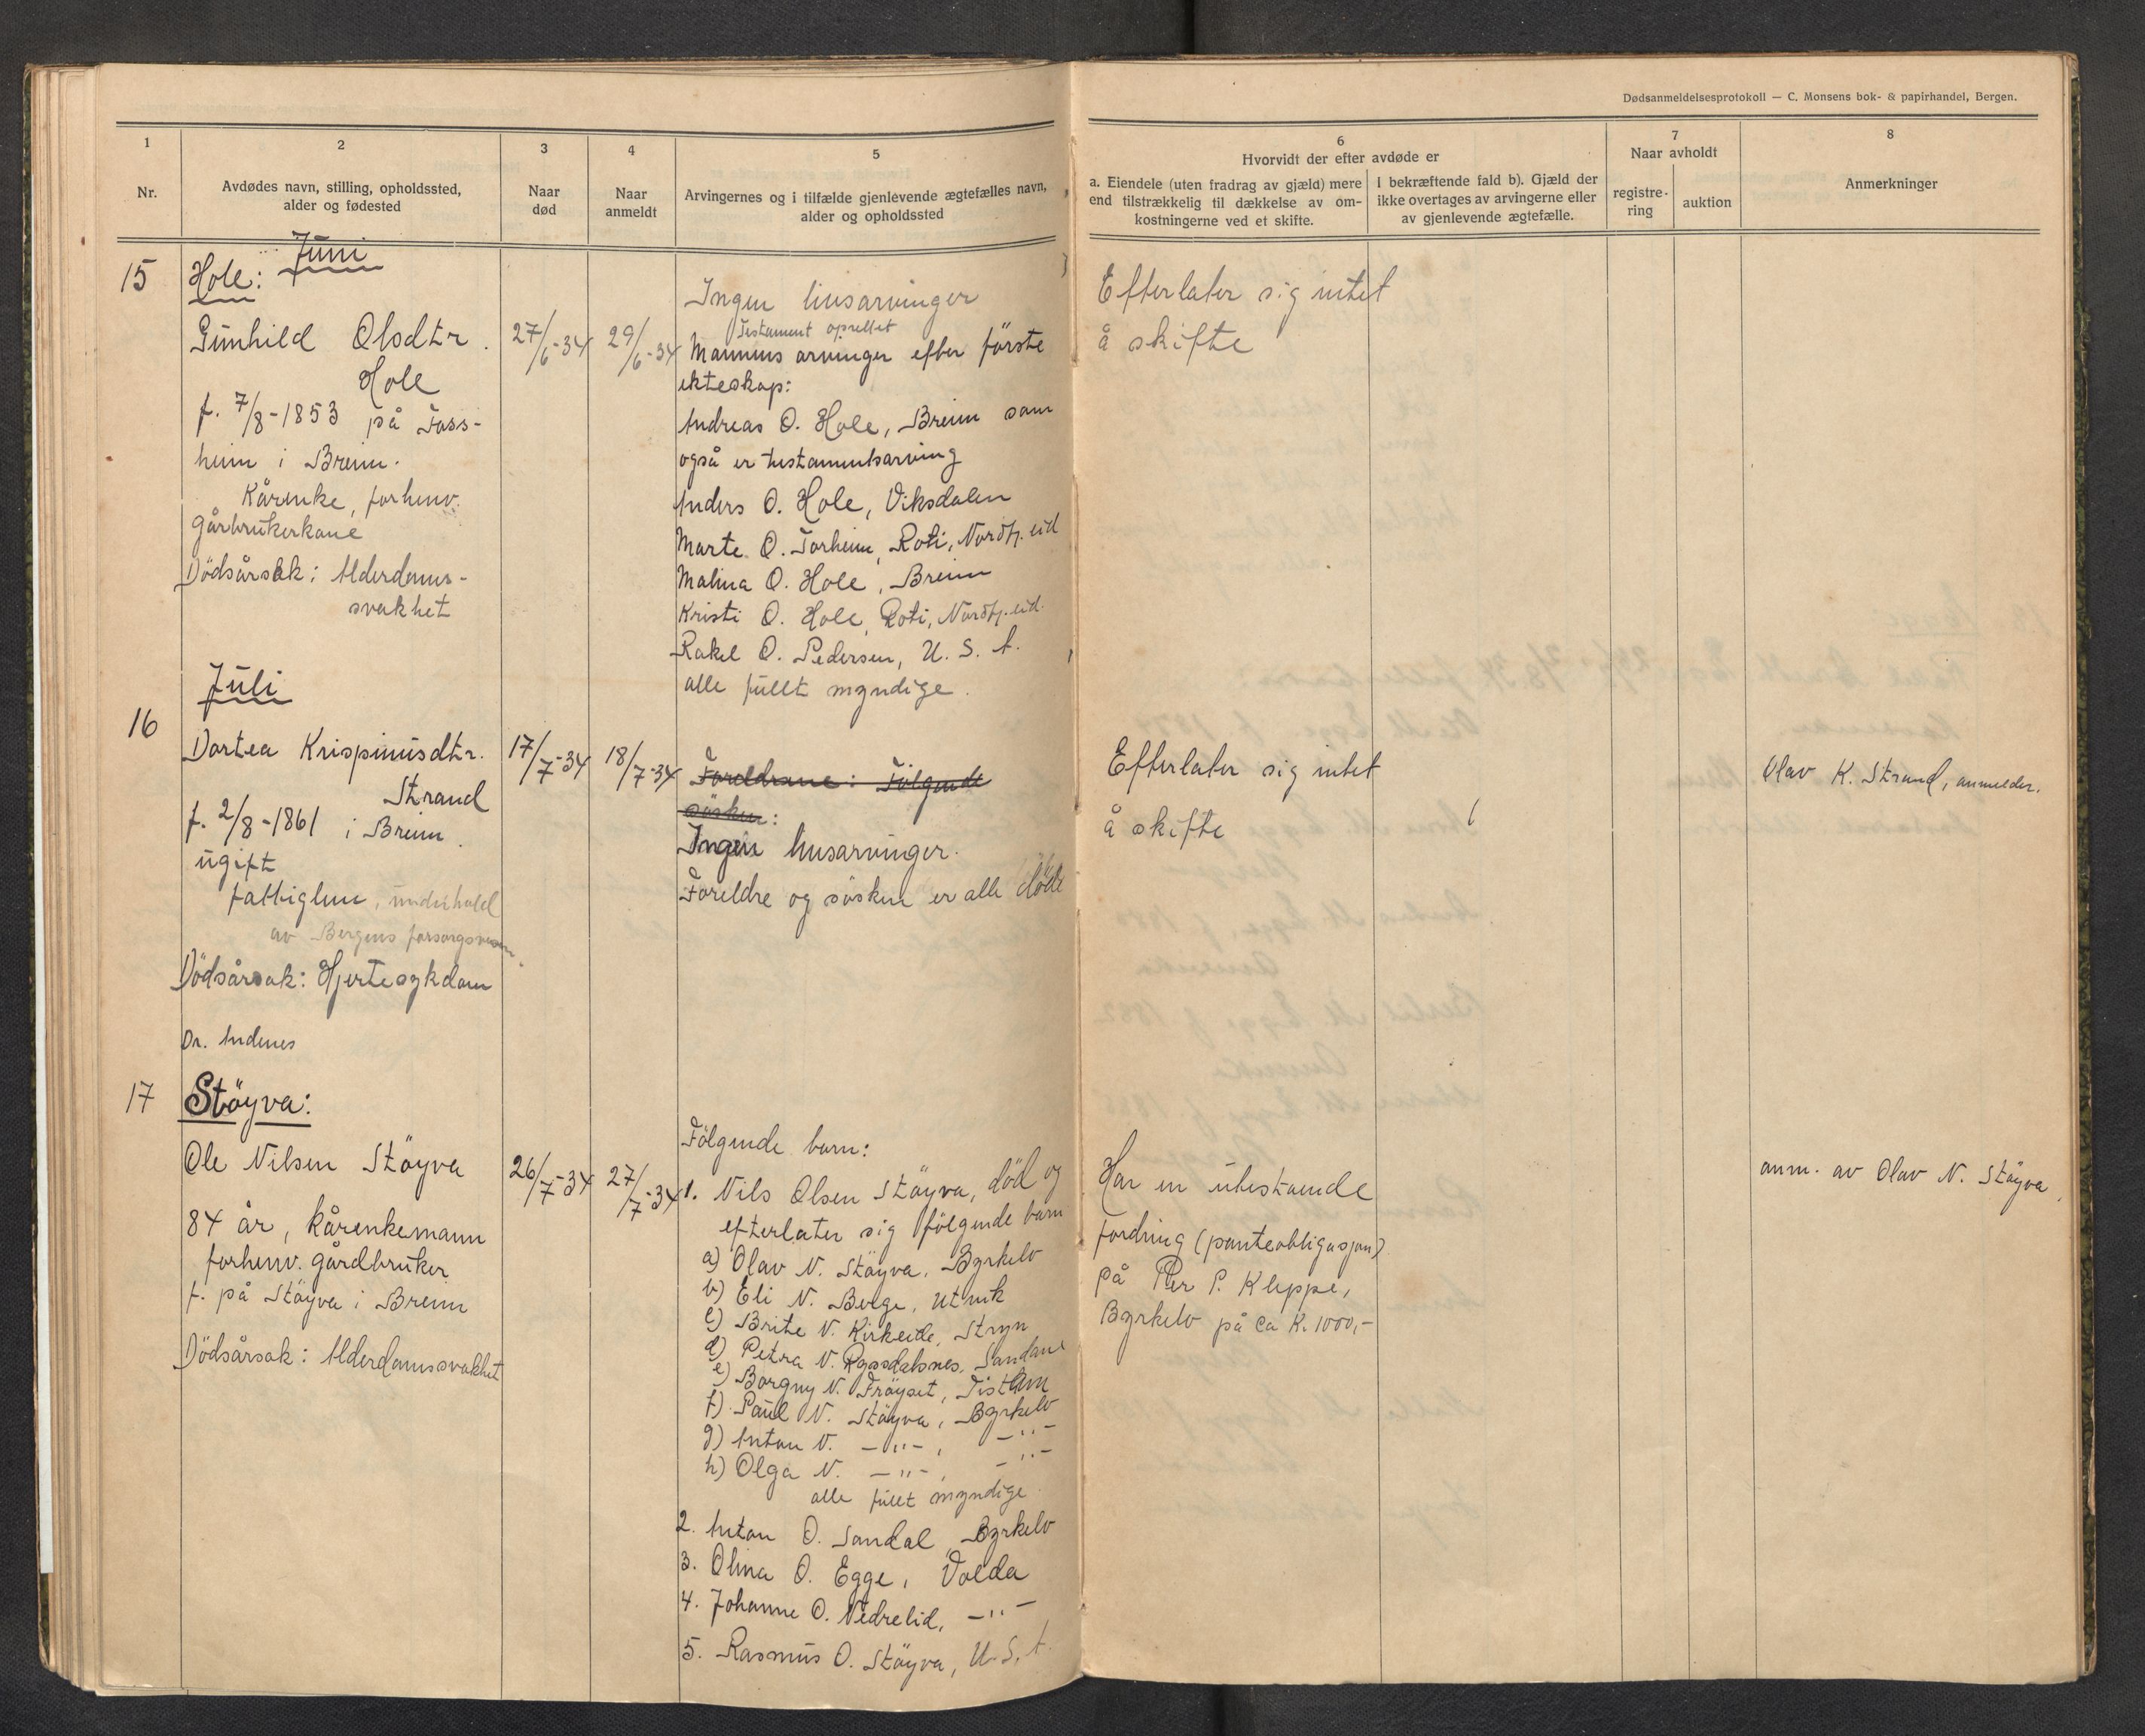 Dødsanmeldelsesprotokoll — C. Monsens bok- & papirhandel, Bergen.
1
Nr.
2
Avdødes navn, stilling, opholdssted,
alder og fødested
3
Naar
død
4
Naar
anmeldt
5
Arvingernes og i tilfælde gjenlevende ægtefælles navn,
alder og opholdssted
6
Hvorvidt der efter avdøde er
a. Eiendele (uten fradrag av gjæld) mere
end tilstrækkelig til dækkelse av om-
kostningerne ved et skifte.
I bekræftende fald b). Gjæld der
ikke overtages av arvingerne eller
av gjenlevende ægtefælle.
7
Naar avholdt
registre-
ring
auktion
8
Anmerkninger
Juni
15
Hole:
Gunhild Olsdtr.
Hole
f. 7/8-1853 på Foss-
heim i Breim.
Kårenke, forhenv.
gårbrukerkone
Dödsårsak: Alderdoms-
svakhet
27/6-34
29/6-34
Ingen livsarvinger
Testament oprettet
Mannens arvinger efter förste
ekteskap:
Andreas O. Hole, Breim som
også er testamentsarving
Anders O. Hole, Viksdalen
Marte O. Torheim, Roti, Nordfj.eid
Malina O. Hole, Breim
Kristi O. Hole, Roti, Nordfj.eid.
Rakel O. Pedersen, U. S. A.
alle fullt myndige.
Efterlater sig intet
å skifte
Juli
16
Dortea Krispinusdtr.
Strand
f. 2/8-1861 i Breim.
ugift
fattiglem, underholdt
av Bergens forsorgsvesen.
Dödsårsak: Hjertesykdom
Dr. Andenes
17/7-34
18/7-34
Foreldrene: Fölgende
sösken:
Ingen livsarvinger.
Foreldre og sösken er alle döde
Efterlater sig intet
å skifte
Olav K. Strand, anmelder.
17
Stöyva:
Ole Nilsen Stöyva
84 år, kårenkemann
forhenv. gårdbruker
f. på Stöyva i Breim
Dödsårsak: Alderdomssvakhet
26/7-34
27/7-34
Fölgende barn:
1. Nils Olsen Stöyva, död og
efterlater sig fölgende barn
a) Olav N. Stöyva, Byrkelo
b) Eli N. Berge, Utvik
c) Brite N. Kirkeide, Stryn
d) Petra N. Ryssdalsnes, Sandane
e) Borgny N. Fröyset, Tistam
f) Paul N. Stöyva, Byrkelo
g) Anton N. —"—, —"—
h) Olga N. —"—, —"—
alle fullt myndige.
2. Anton O. Sandal, Byrkelo
3. Olina O. Egge, Volda
4. Johanne O. Nedrelid, —"—
5. Rasmus O. Stöyva, U.S.A.
Har en utestaende
fordring (panteobligasjon)
på Per P. Kleppe,
Byrkelo på ca K. 1000,-
anm. av Olav N. Stöyva.